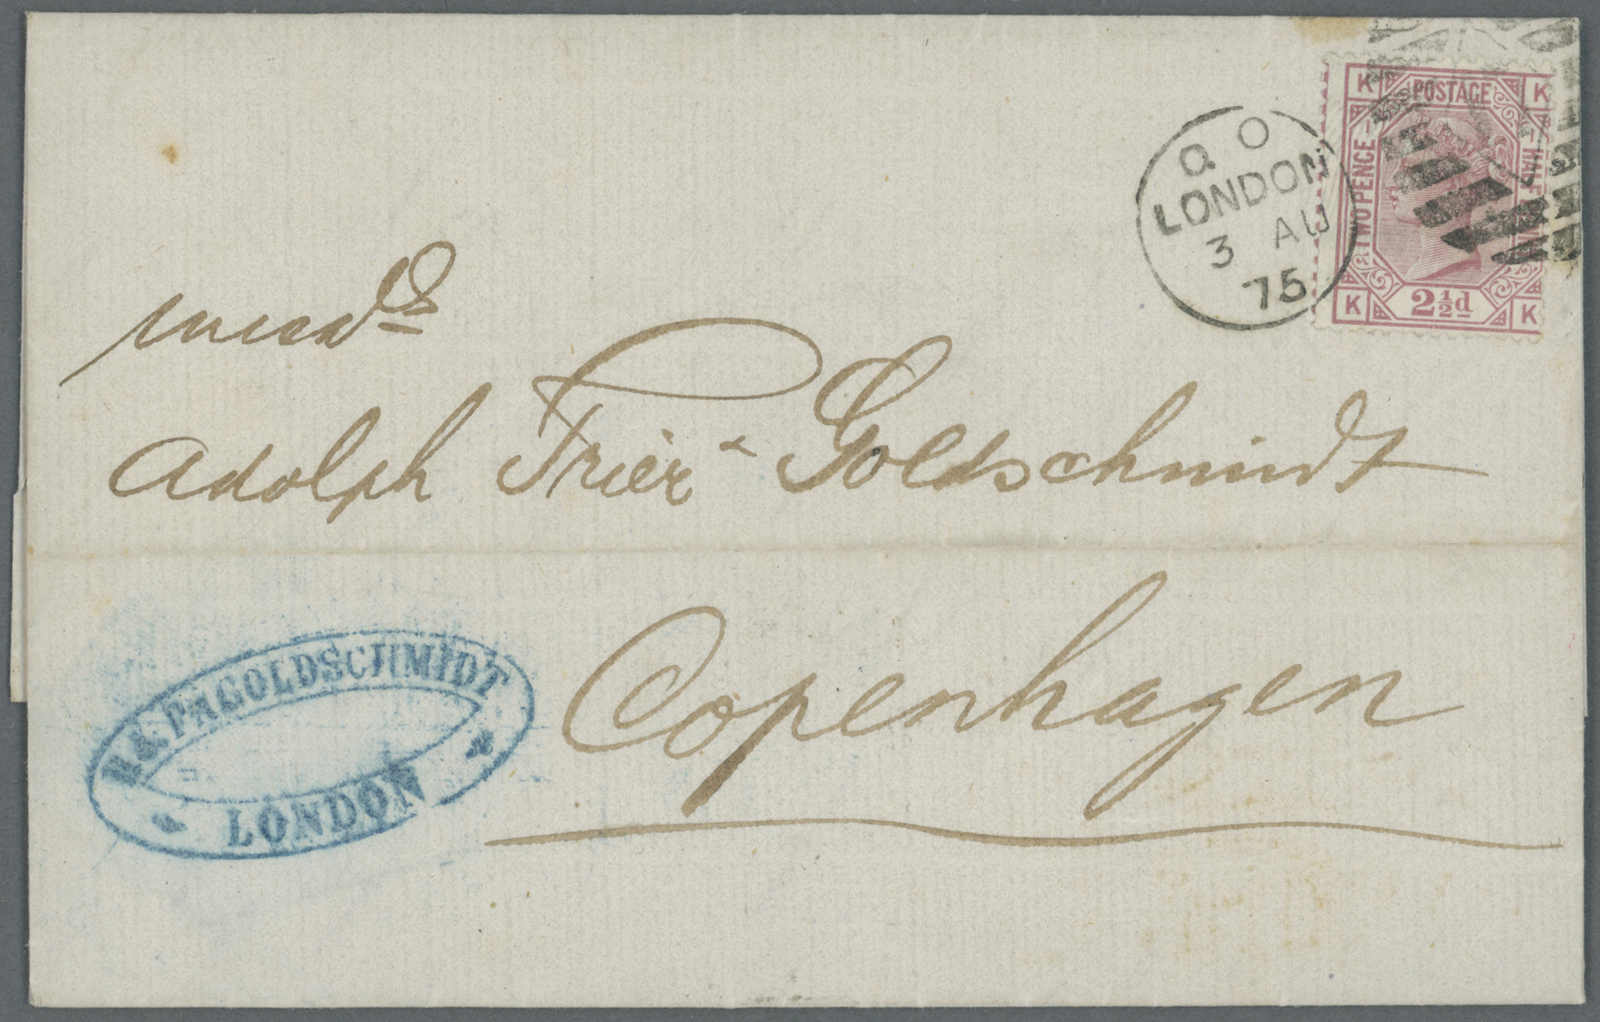 K POSTAGE K
TWO PENCE
HALF
K 2½d K
O
LONDON
3 AU
75
Adolph Trier & Goldschmidt
Copenhagen
GOLDSCHMIDT
LONDON